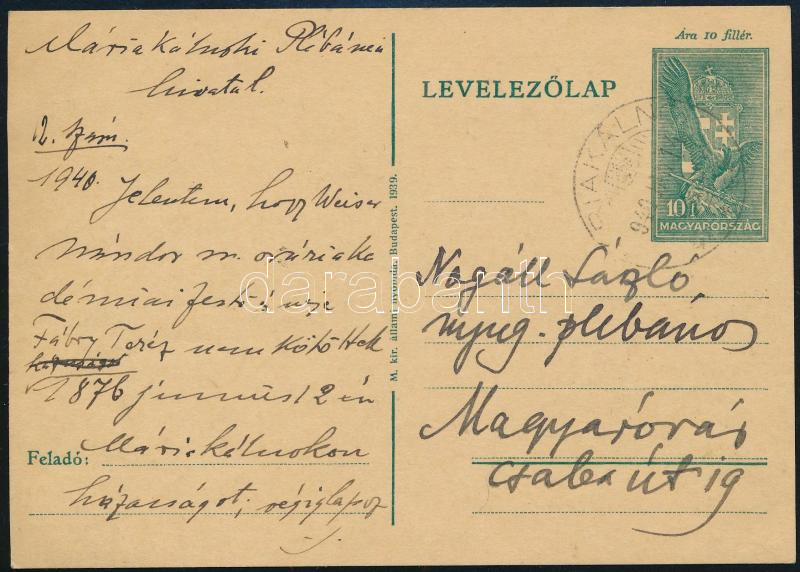 Máriakálnoki Plébánia
hivatal.
2. szám.
1940.
Jelentem, hogy Weiser
Nándor m. óvári aka
démiai festő és neje
Fábry Teréz nem kötöttek
1876 június 12 én
Máriakálnokon
házasságot,
Feladó:
M. kir. állami nyomda, Budapest. 1939.
LEVELEZŐLAP
Ára 10 fillér.
10 f
MAGYARORSZÁG
RIAKÁLN
940
Nagáll László
nyug. plébános
Magyaróvár
Csaba út 19
darabanth